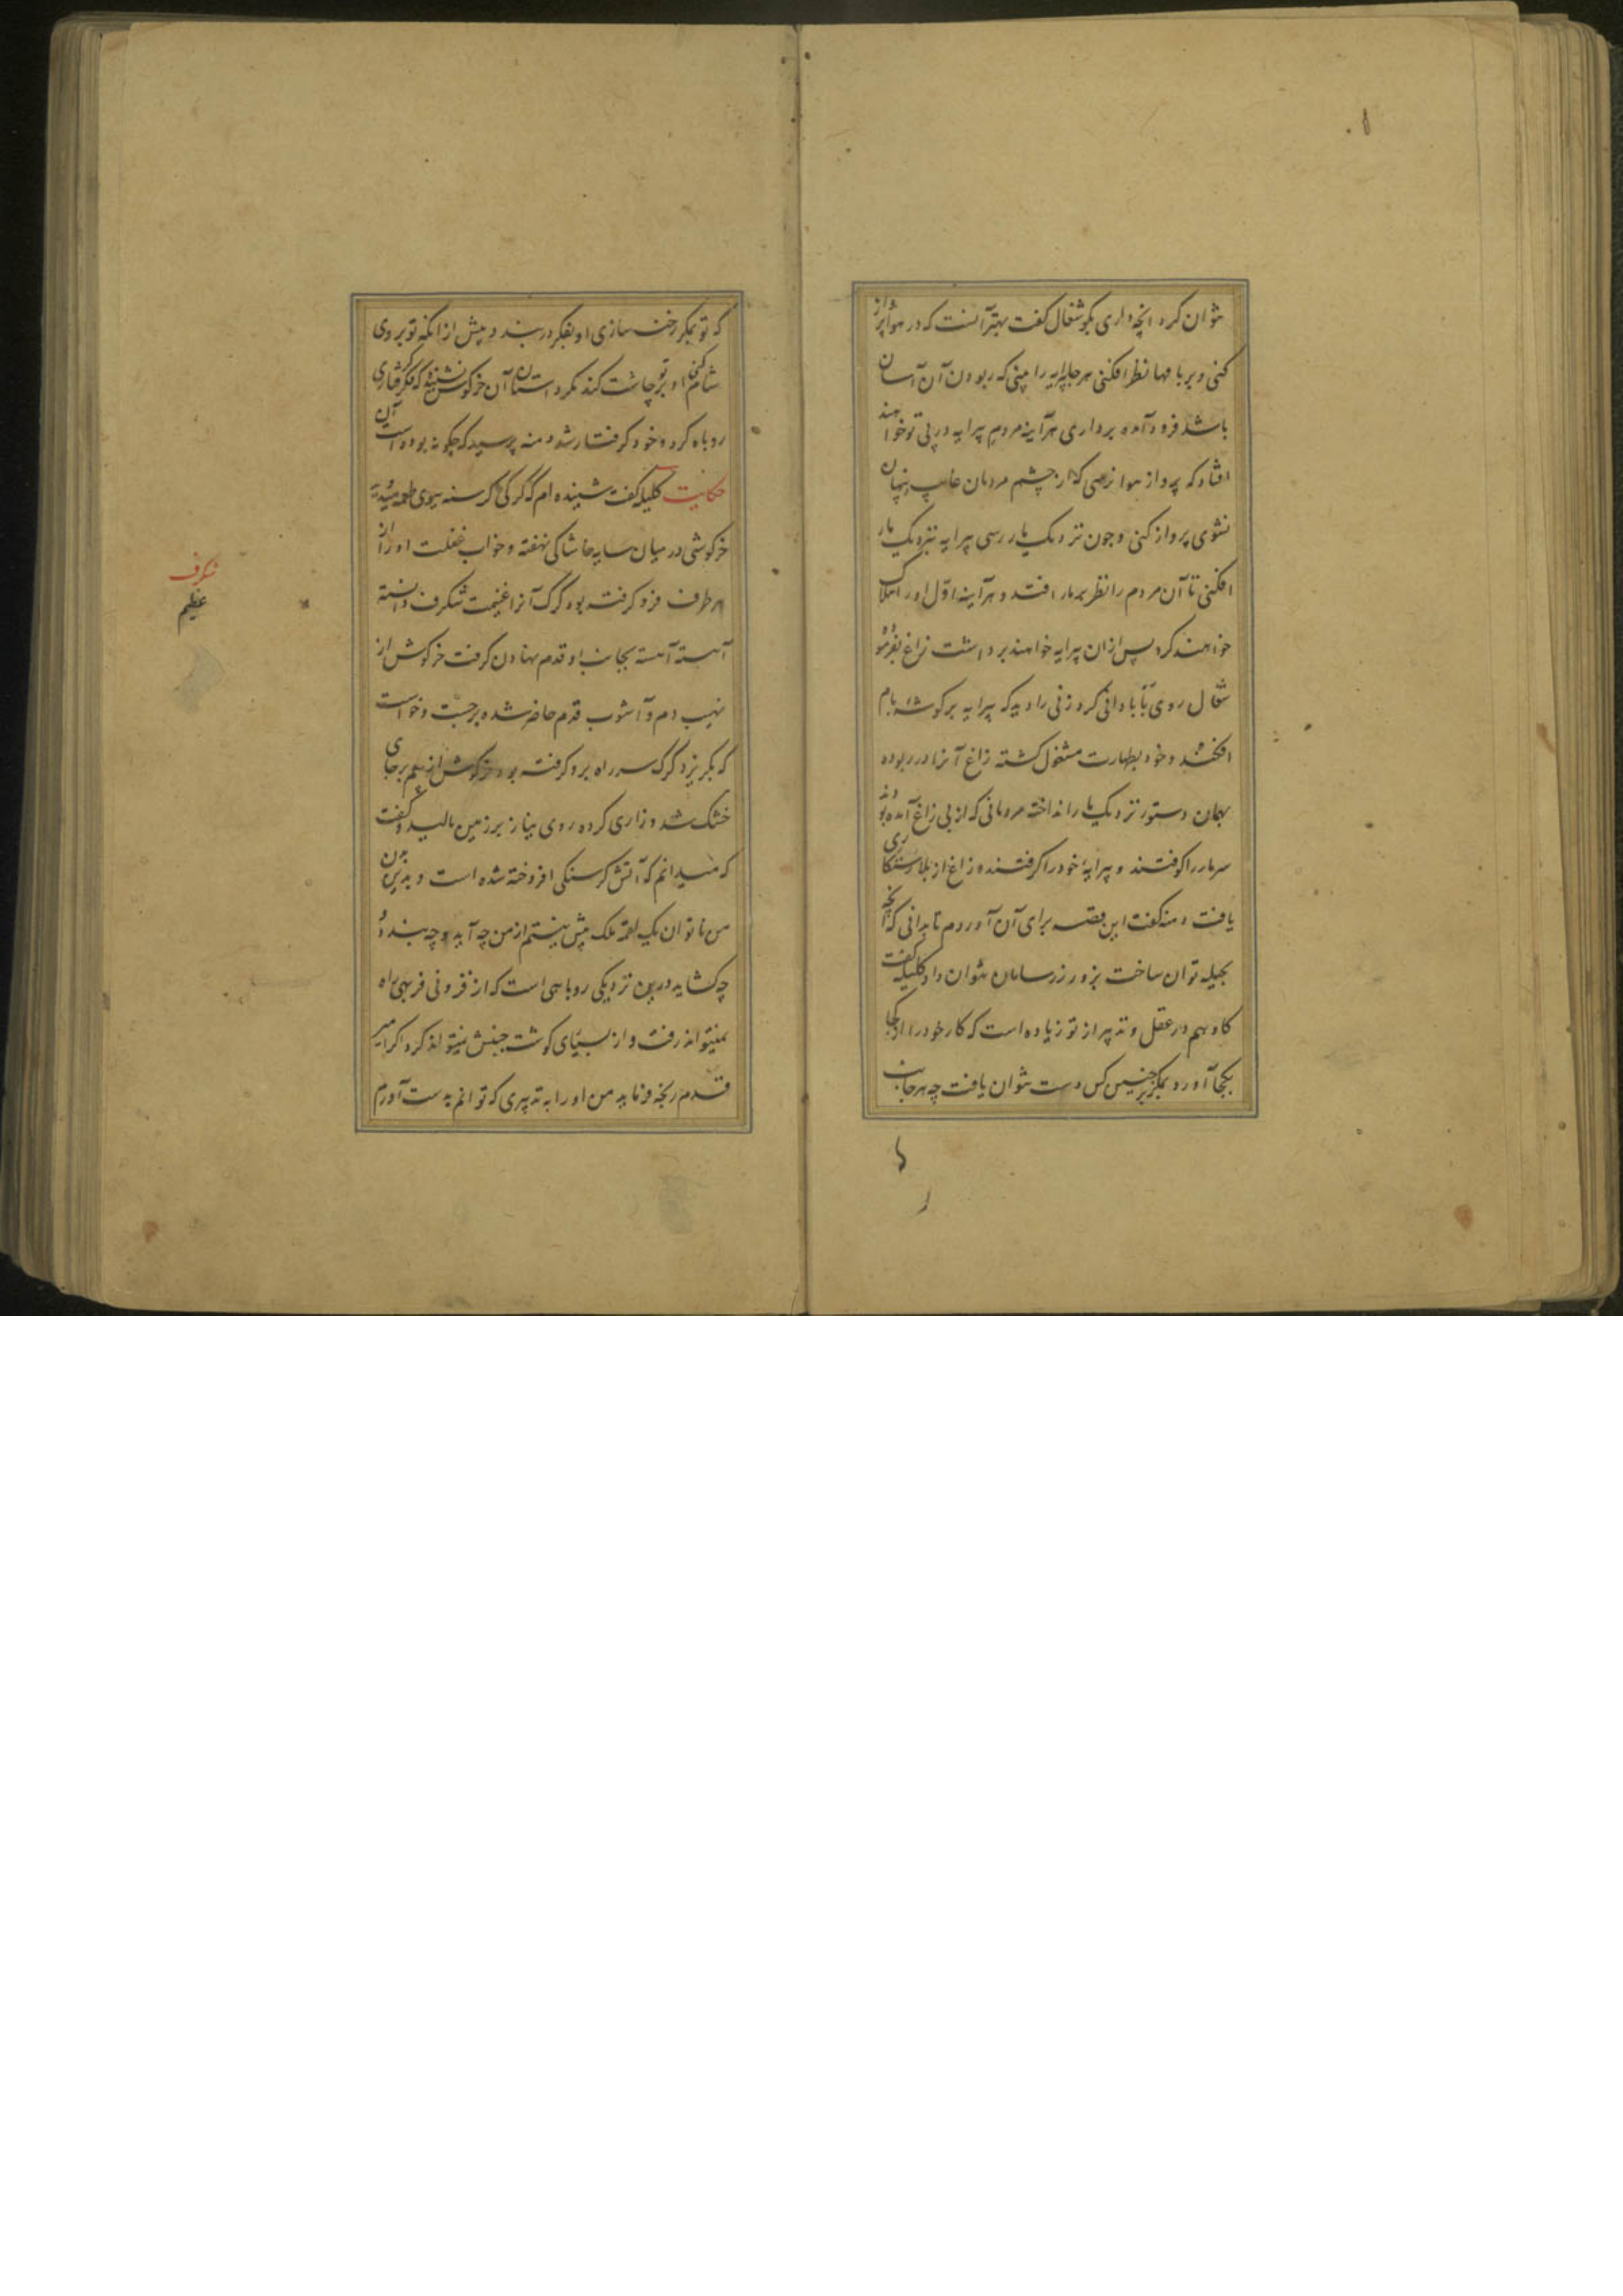 نتوان کرد انچه داری بگو شغال گفت بهتر آنست که در هوا پرواز
کنی و بر بامها نظر افکنی هر جا پیرایه را بینی که ربودن آن آسان
باشد فرود آمده برداری هر آینه مردم پیرایه در پی تو خواهند
افتاد که پرواز هوا نوعی کن از چشم مردمان غایب و پنهان
نشوی پرواز کنی و چون نزدیک مار رسی پیرایه نزدیک مار
افکنی تا آن مردم را نظر بر مار افتد و هر آینه اول او را هلاک
خواهند کرد پس ازان پیرایه خواهند برداشت زاغ بفرموده
شغال روی بآبادانی کرد زنی را دید که پیرایه بر گوشه بام
افکنده و خود بطهارت مشغول گشته زاغ آنرا در ربوده
بهمان دستور نزدیک مار انداخته مردمانی که از پی زاغ آمده بودند
سر مار را کوفتند و پیرایه خود را گرفتند و زاغ از بلا رستگاری
یافت دمنه گفت این قصه برای آن آوردم تا بدانی که آنچه
بحیله توان ساخت بزور زر سامان نتوان داد کلیله گفت
گاو هم در عقل و تدبیر از تو زیاده است که کار خود را از کجا
بکجا آورد بمکر بر چنین کس دست نتوان یافت چه هر جانب
که تو بمکر رخنه سازی او بفکر در بندد و پیش از انکه تو بر وی
شام کنی او بر تو چاشت کند مگر داستان آن خرگوش نشنیده که فکر گرفتاری
روباه کرد و خود گرفتار شد دمنه پرسید که چگونه بوده است آن
حکایت کلیله گفت شنیده ام که گرگی گرسنه ببوی طعمه میدوید
خرگوشی در میان سایه خاشاکی نهفته و خواب غفلت او را از
هر طرف فرو گرفته بود گرگ آنرا غنیمت شگرف دانسته
آهسته آهسته بجانب او قدم نهادن گرفت خرگوش از
نهیب دم و آشوب قدم حاضر شده برجست و خواست
که بگریزد گرگ سر راه برو گرفته بود خرگوش از بیم بر جای
خشک شد و زاری کرده روی نیاز بر زمین مالید و گفت
که میدانم که آتش گرسنگی افروخته شده است و بدین
من ناتوان یک لقمه ملک بیش نیستم از من چه آید و چه بندد و
چه گشاید درین نزدیکی روباهی است که از فزونی فربهی براه
نمیتواند رفت و از بسیاری گوشت جنبش نمیتواند کرد اگر امیر
قدم رنجه فرماید من او را به تدبیری که توانم بدست آورم
شگرف
عظیم